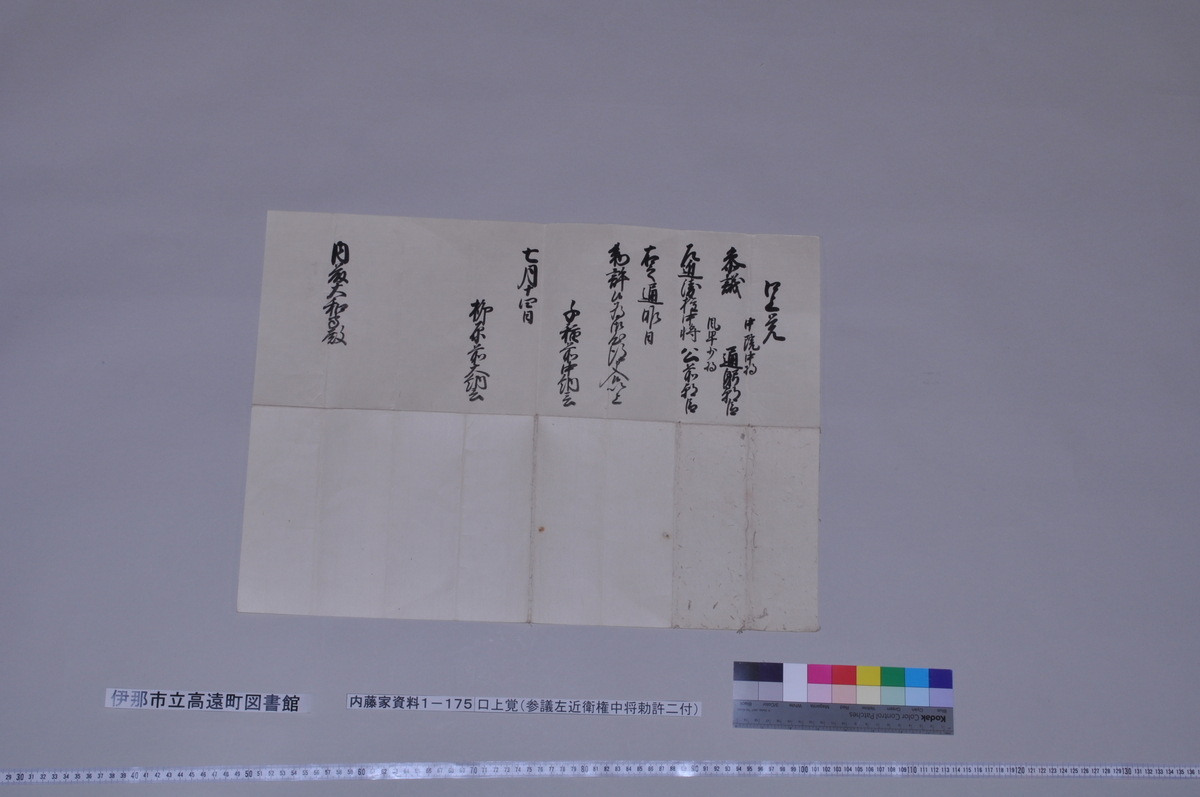 口上覚
中院中将
参議 通躬朝臣
風早少将
左近衛権中将 公前朝臣
右之通昨日
勅許
千種前中納言
七月十四日
柳原前大納言
内藤大和守殿
伊那市立高遠町図書館
内藤家資料1-175 口上覚(参議左近衛権中将勅許二付)
Kodak Color Control Patches